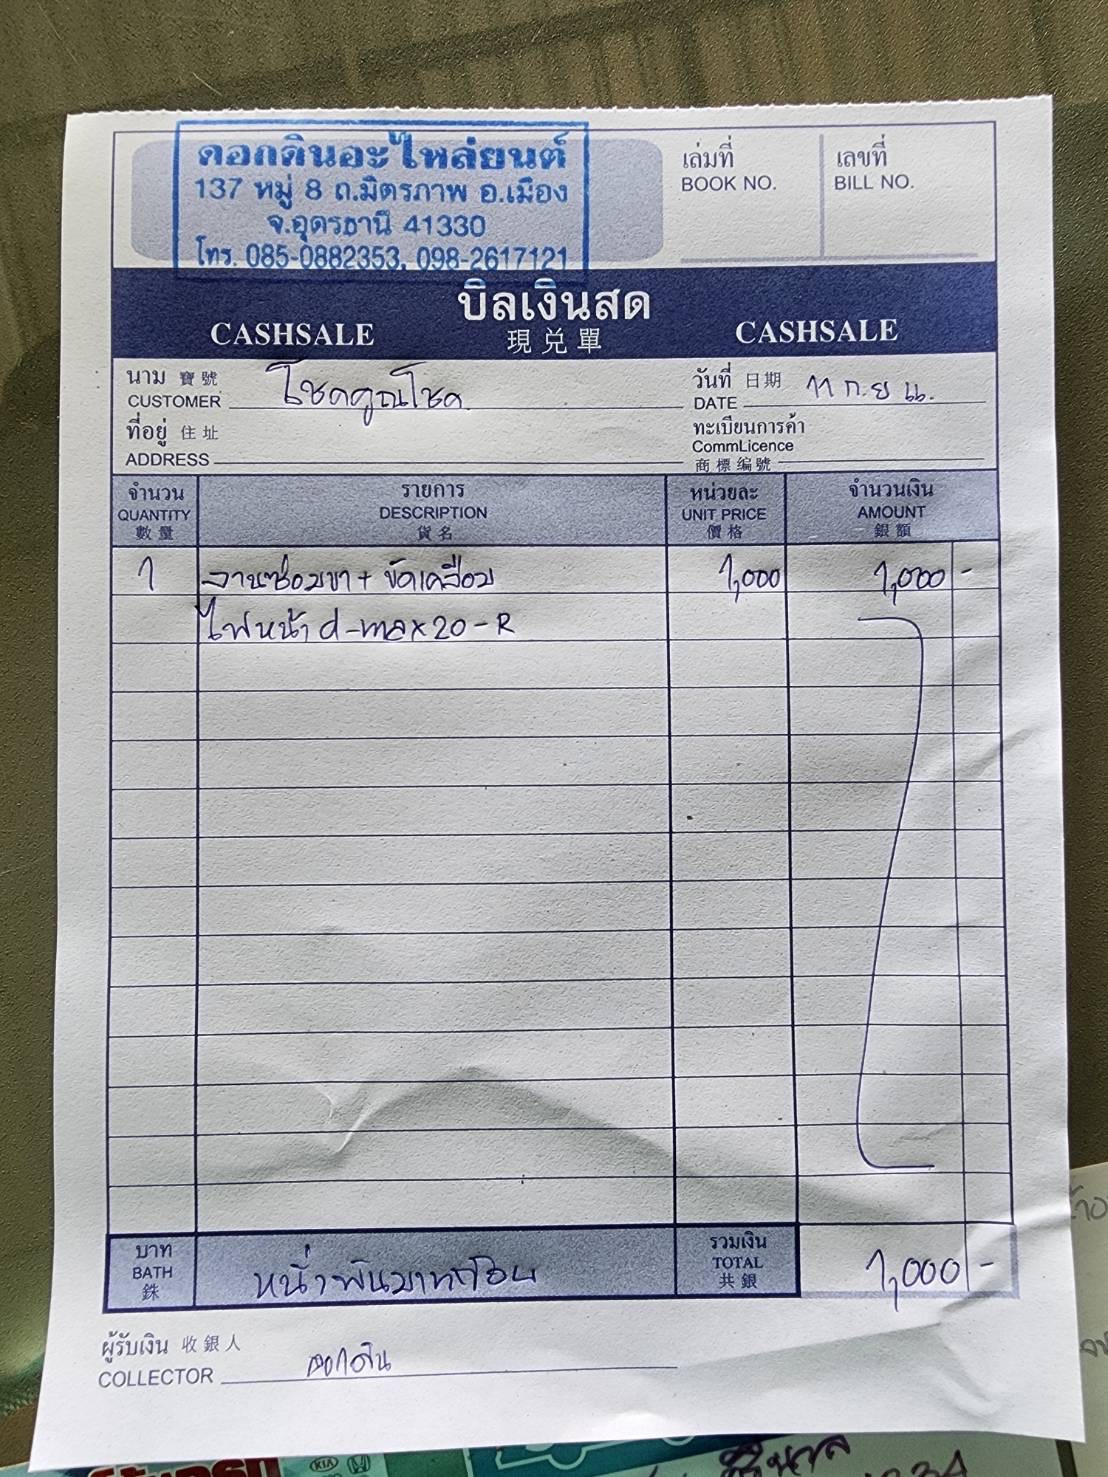 ดอกดินอะไหล่ยนต์
137 หมู่ 8 ถ.มิตรภาพ อ.เมือง
จ.อุดรธานี 41330
โทร. 085-0882353, 098-2617121
เล่มที่
BOOK NO.
เลขที่
BILL NO.
บิลเงินสด
CASHSALE 現兌單 CASHSALE
นาม 寶號
CUSTOMER โชคคูณโชค
วันที่ 日期
DATE 11 ก.ย
ที่อยู่ 住址
ADDRESS
ทะเบียนการค้า
CommLicence
商標編號
จำนวน
QUANTITY
數量
รายการ
DESCRIPTION
貨名
หน่วยละ
UNIT PRICE
價格
จำนวนเงิน
AMOUNT
銀額
1 งานซ่อมขา + ขัดเคลือบ 1,000 1,000 -
ไฟหน้า d-max 20 - R
บาท
BATH
銖
หนึ่งพันบาทถ้วน
รวมเงิน
TOTAL
共銀
1,000 -
ผู้รับเงิน 收銀人
COLLECTOR ดอกดิน
KIA